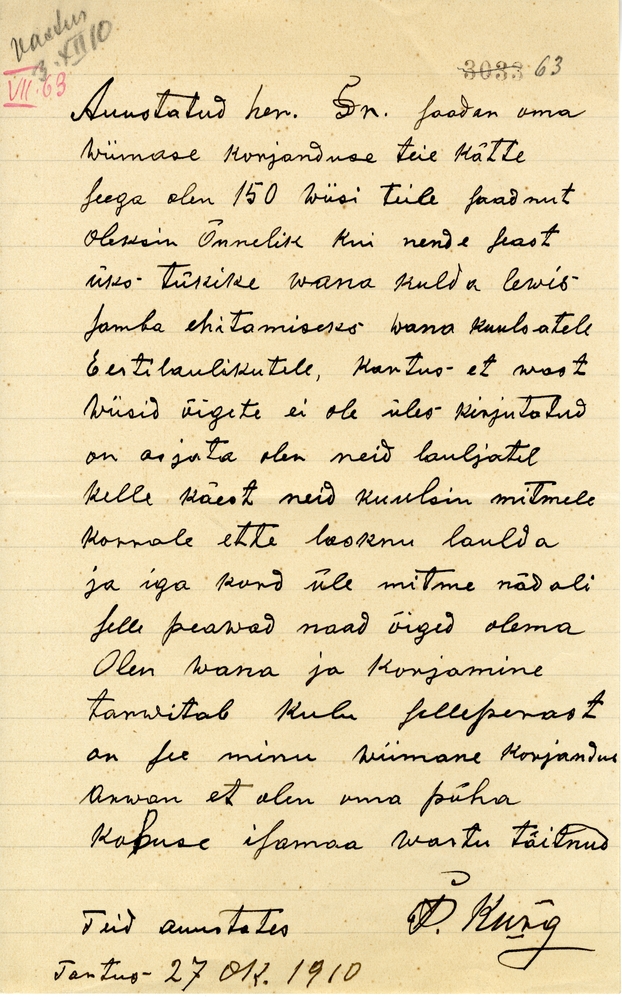 Vastus
3. XII 10
VII. 63
3033 63
Auustatud her. Dr. saadan oma
wiimase korjanduse teie kätte
seega olen 150 wiisi teile saadnut
oleksin Önnelik kui nende seast
üks tükike wana kulda lewis
samba ehitamiseks wana kuulsatele
Eestilaulikutele, kartus et wast
wiisid õigete ei ole üles kirjutatud
on asjata olen neid lauljatel
kelle käest neid kuulsin mitmele
korrale ette lasknu laulda
ja iga kord üle mitme nädali
selle peawad naad õiged olema
Olen wana ja korjamine
tarwitab kuluselleperast
on see minu wiimane korjandus
arwan et olen oma püha
kohuse isamaa wastu täitnud
Teid auustates P. Kurg
Tartus 27 Ok. 1910